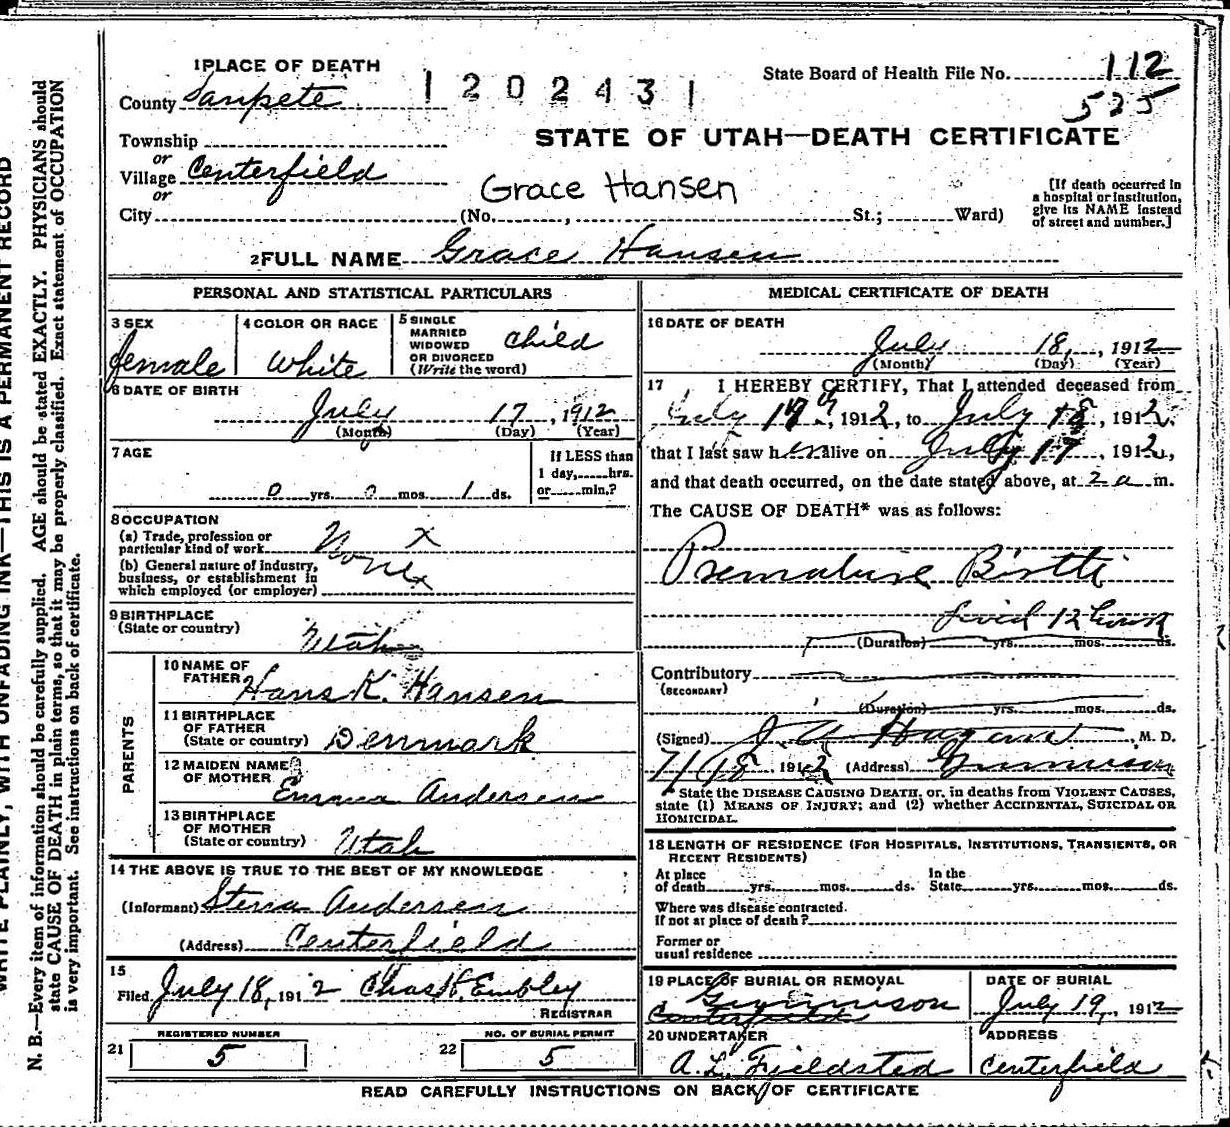 WRITE PLAINLY, WITH UNFADING INK—THIS IS A PERMANENT RECORD
N. B.—Every item of information should be carefully supplied. AGE should be stated EXACTLY. PHYSICIANS should
state CAUSE OF DEATH in plain terms, so that it may be properly classified. Exact statement of OCCUPATION
is very important. See instructions on back of certificate.
1 PLACE OF DEATH
County Sanpete
1202431
State Board of Health File No. 112
525
Township
or
Village Centerfield
or
City
STATE OF UTAH—DEATH CERTIFICATE
Grace Hansen
(No. , St.; Ward)
[If death occurred in
a hospital or institution,
give its NAME instead
of street and number.]
2 FULL NAME Grace Hansen
PERSONAL AND STATISTICAL PARTICULARS
3 SEX
female
4 COLOR OR RACE
White
5 SINGLE
MARRIED
WIDOWED
OR DIVORCED
(Write the word)
child
6 DATE OF BIRTH
July 17, 1912
(Month) (Day) (Year)
7 AGE
0 yrs. 0 mos. 1 ds.
If LESS than
1 day, hrs.
or min.?
8 OCCUPATION
(a) Trade, profession or
particular kind of work
None x
(b) General nature of industry,
business, or establishment in
which employed (or employer)
x
9 BIRTHPLACE
(State or country)
Utah
PARENTS
10 NAME OF
FATHER Hans K. Hansen
11 BIRTHPLACE
OF FATHER
(State or country) Denmark
12 MAIDEN NAME
OF MOTHER
Emma Andersen
13 BIRTHPLACE
OF MOTHER
(State or country) Utah
14 THE ABOVE IS TRUE TO THE BEST OF MY KNOWLEDGE
(Informant) Andersen
(Address) Centerfield
15
Filed July 18, 1912 Chas H. Embley
REGISTRAR
REGISTERED NUMBER
21 5
NO. OF BURIAL PERMIT
22 5
MEDICAL CERTIFICATE OF DEATH
16 DATE OF DEATH
July 18, 1912
(Month) (Day) (Year)
17 I HEREBY CERTIFY, That I attended deceased from
July 17th, 1912, to July 18, 1912,
that I last saw her alive on July 17, 1912,
and that death occurred, on the date stated above, at 2 a m.
The CAUSE OF DEATH* was as follows:
Premature Birth
Lived 12 hours
(Duration) yrs. mos. ds.
Contributory
(SECONDARY)
(Duration) yrs. mos. ds.
(Signed) J. A. Hagan , M. D.
7/18, 1912 (Address) Gunnison
*State the DISEASE CAUSING DEATH, or, in deaths from VIOLENT CAUSES,
state (1) MEANS OF INJURY; and (2) whether ACCIDENTAL, SUICIDAL OR
HOMICIDAL.
18 LENGTH OF RESIDENCE (FOR HOSPITALS, INSTITUTIONS, TRANSIENTS, OR
RECENT RESIDENTS)
At place
of death yrs. mos. ds.
In the
State yrs. mos. ds.
Where was disease contracted.
If not at place of death?
Former or
usual residence
19 PLACE OF BURIAL OR REMOVAL
Gunnison
Centerfield
DATE OF BURIAL
July 19, 1912
20 UNDERTAKER
A. L. Fjeldsted
ADDRESS
Centerfield
READ CAREFULLY INSTRUCTIONS ON BACK OF CERTIFICATE